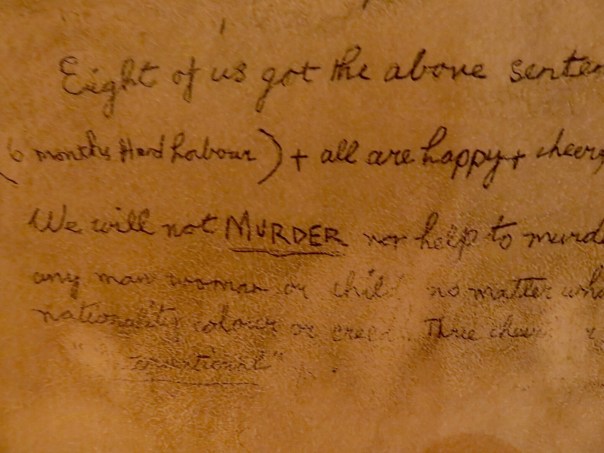 Eight of us got the above senten
(6 months Hard Labour) + all are happy + cheery
We will not MURDER nor help to murd
any man woman or child no matter wha
nationality colour or creed. Three cheers